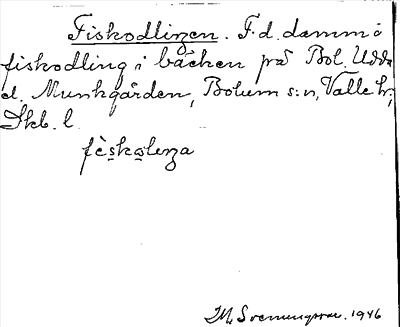 Fiskodlingen. F.d. damm o
fiskodling i bäcken på Bol. Udda
d. Munkgården, Bolum s:n, Valle hd,
Skb. l.
fèskǫleŋa
M. Svenungsson. 1946